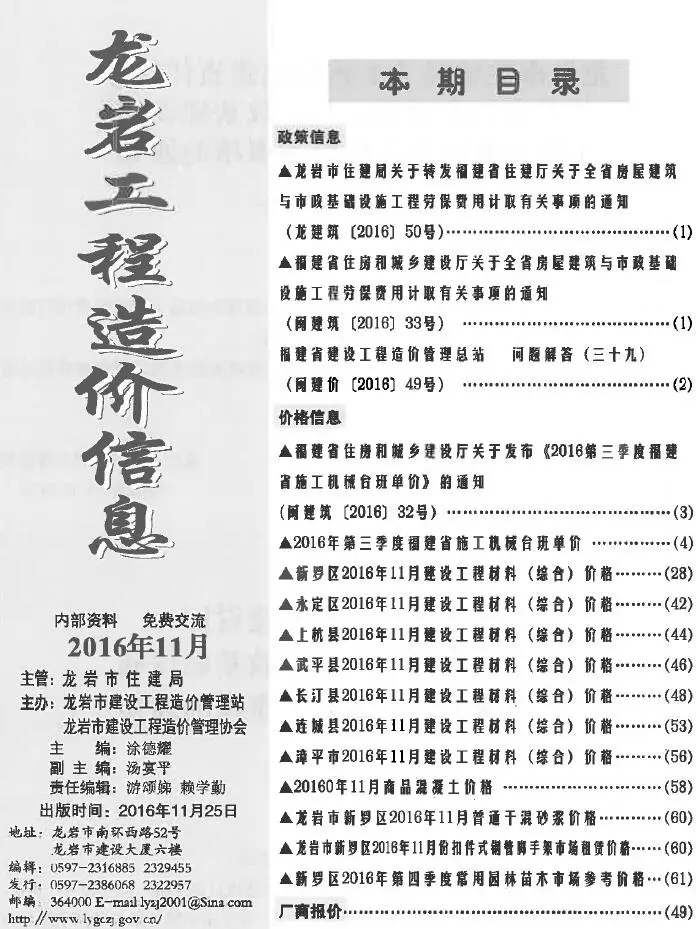 龙岩工程造价信息
内部资料 免费交流
2016年11月
主管：龙岩市住建局
主办：龙岩市建设工程造价管理站
龙岩市建设工程造价管理协会
主 编：涂德耀
副主编：汤宴平
责任编辑：游颂娣 赖学勤
出版时间：2016年11月25日
地址：龙岩市南环西路52号
龙岩市建设大厦六楼
编辑：0597-2316885 2329455
发行：0597-2386068 2322957
邮编 364000 E-mail:lyzj2001@Sina.com
http://www.lygczj.gov.cn/
本期目录
政策信息
▲龙岩市住建局关于转发福建省住建厅关于全省房屋建筑
与市政基础设施工程劳保费用计取有关事项的通知
（龙建筑〔2016〕50号）…………………………(1)
▲福建省住房和城乡建设厅关于全省房屋建筑与市政基础
设施工程劳保费用计取有关事项的通知
（闽建筑〔2016〕33号） …………………………(1)
福建省建设工程造价管理总站 问题解答（三十九）
（闽建价〔2016〕49号） …………………………(2)
价格信息
▲福建省住房和城乡建设厅关于发布《2016第三季度福建
省施工机械台班单价》的通知
（闽建筑〔2016〕32号） …………………………(3)
▲2016年第三季度福建省施工机械台班单价 …………(4)
▲新罗区2016年11月建设工程材料（综合）价格………(28)
▲永定区2016年11月建设工程材料（综合）价格………(42)
▲上杭县2016年11月建设工程材料（综合）价格………(44)
▲武平县2016年11月建设工程材料（综合）价格………(46)
▲长汀县2016年11月建设工程材料（综合）价格………(48)
▲连城县2016年11月建设工程材料（综合）价格………(53)
▲漳平市2016年11月建设工程材料（综合）价格………(56)
▲20160年11月商品混凝土价格 …………………(58)
▲龙岩市新罗区2016年11月普通干混砂浆价格…………(60)
▲龙岩市新罗区2016年11月份扣件式钢管脚手架市场租赁价格……(60)
▲新罗区2016年第四季度常用园林苗木市场参考价格…(61)
厂商报价……………………………………(49)